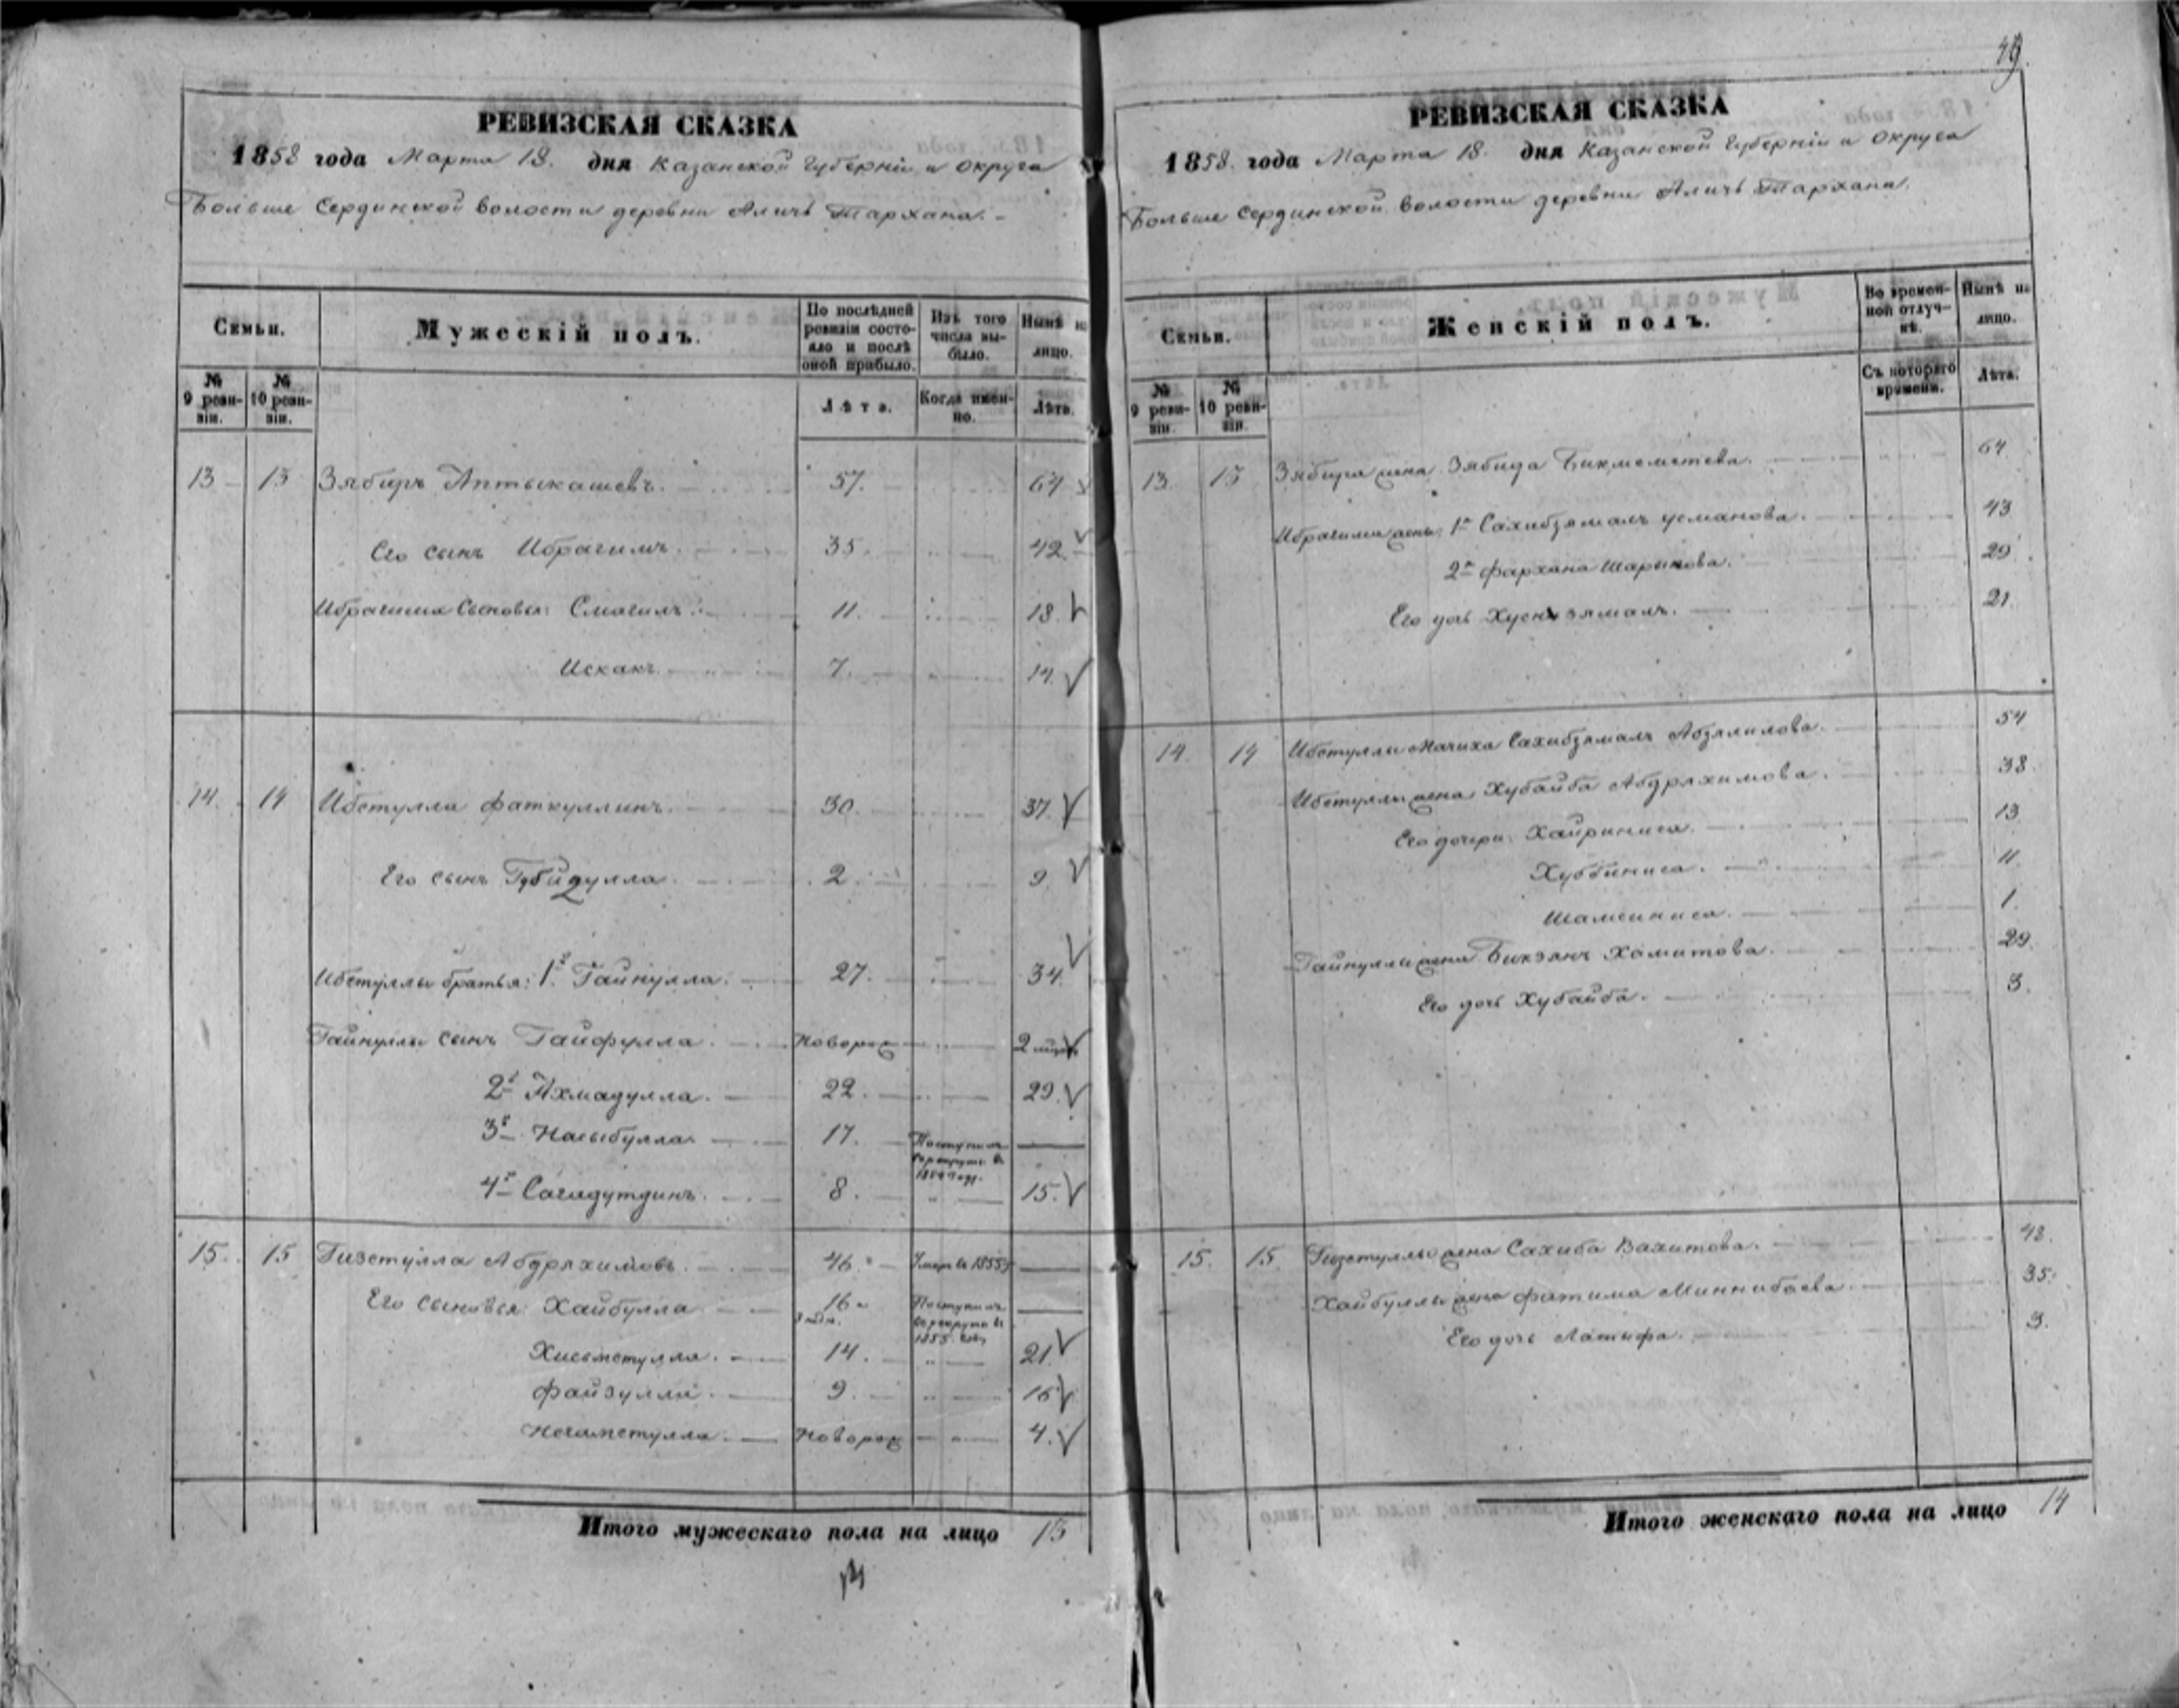 49.
РЕВИЗСКАЯ СКАЗКА
1858 года Марта 18. дня Казанской Губерніи и округа
Больше Сердинской волости деревни Аличъ Тархана. -
Семьи. Мужескій полъ. По послѣдней ревизіи состояло и послѣ оной прибыло. Изъ того числа выбыло. Нынѣ на лицо.
№ 9 ревизіи. № 10 ревизіи. Лѣта. Когда именно. Лѣта.
13 13 Зябиръ Аптыкашевъ. 57. 64
Его сынъ Ибрагимъ. 35. 42.
Ибрагима Сыновья: Смагилъ. 11. 18.
Исхакъ. 7. 14.
14. 14 Ибетулла Фаткуллинъ. 30. 37.
Его сынъ Губидулла. 2. 9.
Ибетуллы братья: 1й Гайнулла. 27. 34.
Гайнуллы сынъ Гайфулла. Новорож 2
2й Ахмадулла. 22. 29.
3й Насыбулла. 17. Поступилъ въ рекруты въ году.
4й Сагадутдинъ. 8. 15.
15. 15 Гизетулла Абдряхимовъ. 46. Умеръ въ 1855
Его сыновья: Хайбулла 16 Поступилъ въ рекруты въ 1855.
Хисметулла. 14. 21.
Файзулла. 9. 16
Негаметулла. Новорож 4.
Итого мужескаго пола на лицо 13
РЕВИЗСКАЯ СКАЗКА
1858. года Марта 18. дня Казанской Губерніи и округа
Больше Сердинской волости деревни Аличъ Тархана.
Семьи. Женскій полъ. Во временной отлучкѣ. Нынѣ на лицо.
№ 9 ревизіи. № 10 ревизіи. Съ котораго времени. Лѣта.
13. 13 Зябира жена Зябида Бикмеметева. 64
Ибрагима жены: 1я Сахибзямалъ Усманова. 43
2я Фархана Шарыпова. 29.
Его дочь Хуснизямалъ. 21.
14. 14 Ибетуллы Мачиха Сахибзямалъ Абзялилова. 54
Ибетуллы жена Хубайба Абдряхимова. 38.
Его дочери: Хайриниса. 13
Хуббиниса. 11.
Шамсиниса. 1.
Гайнуллы жена Бикзянъ Хамитова. 29.
Его дочь Хубайба. 3.
15. 15. Гизетуллы жена Сахиба Вахитова. 48.
Хайбуллы жена Фатима Миннибаева. 35.
Его дочь Латыфа. 3.
Итого женскаго пола на лицо 14